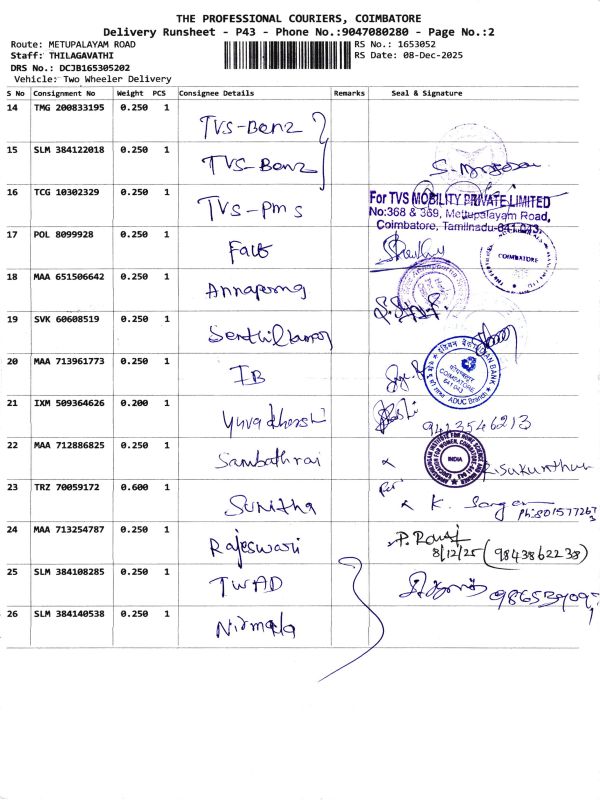 THE PROFESSIONAL COURIERS, COIMBATORE
Delivery Runsheet - P43 - Phone No.:9047080280 - Page No.:2
Route: METUPALAYAM ROAD
RS No.: 1653052
Staff: THILAGAVATHI
RS Date: 08-Dec-2025
DRS No.: DCJB165305202
Vehicle: Two Wheeler Delivery
S No Consignment No Weight PCS Consignee Details Remarks Seal & Signature
14 TMG 200833195 0.250 1 TVS-Benz
15 SLM 384122018 0.250 1 TVS-Benz
16 TCG 10302329 0.250 1 TVS-Pms
For TVS MOBILITY PRIVATE LIMITED
No:368 & 369, Mettupalayam Road,
Coimbatore, Tamilnadu-641 043.
17 POL 8099928 0.250 1
COIMBATORE
18 MAA 651506642 0.250 1
19 SVK 60608519 0.250 1
20 MAA 713961773 0.250 1 IB
COIMBATORE
641 043
ADUC Branch
21 IXM 509364626 0.200 1
9413546213
22 MAA 712886825 0.250 1 Sambathrai
INDIA
23 TRZ 70059172 0.600 1 Sunitha
24 MAA 713254787 0.250 1 Rajeswari
8/12/25 (9843862238)
25 SLM 384108285 0.250 1 TWAD
26 SLM 384140538 0.250 1 Nirmala